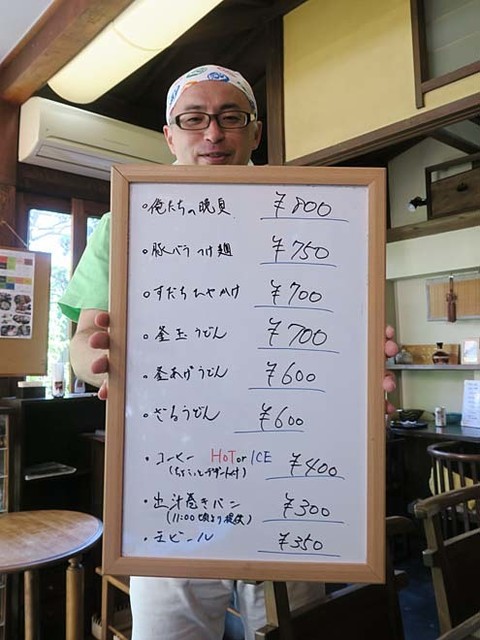 。俺たちの晩夏 ¥800
。豚バラつけ麺 ¥750
。すだちひやかけ ¥700
・釜玉うどん ¥700
・釜あげうどん ¥600
・ざるうどん ¥600
・コーヒー HOT or ICE ¥400
(ちょこっとデザート付)
・出汁巻きパン ¥300
(11:00頃より提供)
・生ビール ¥350